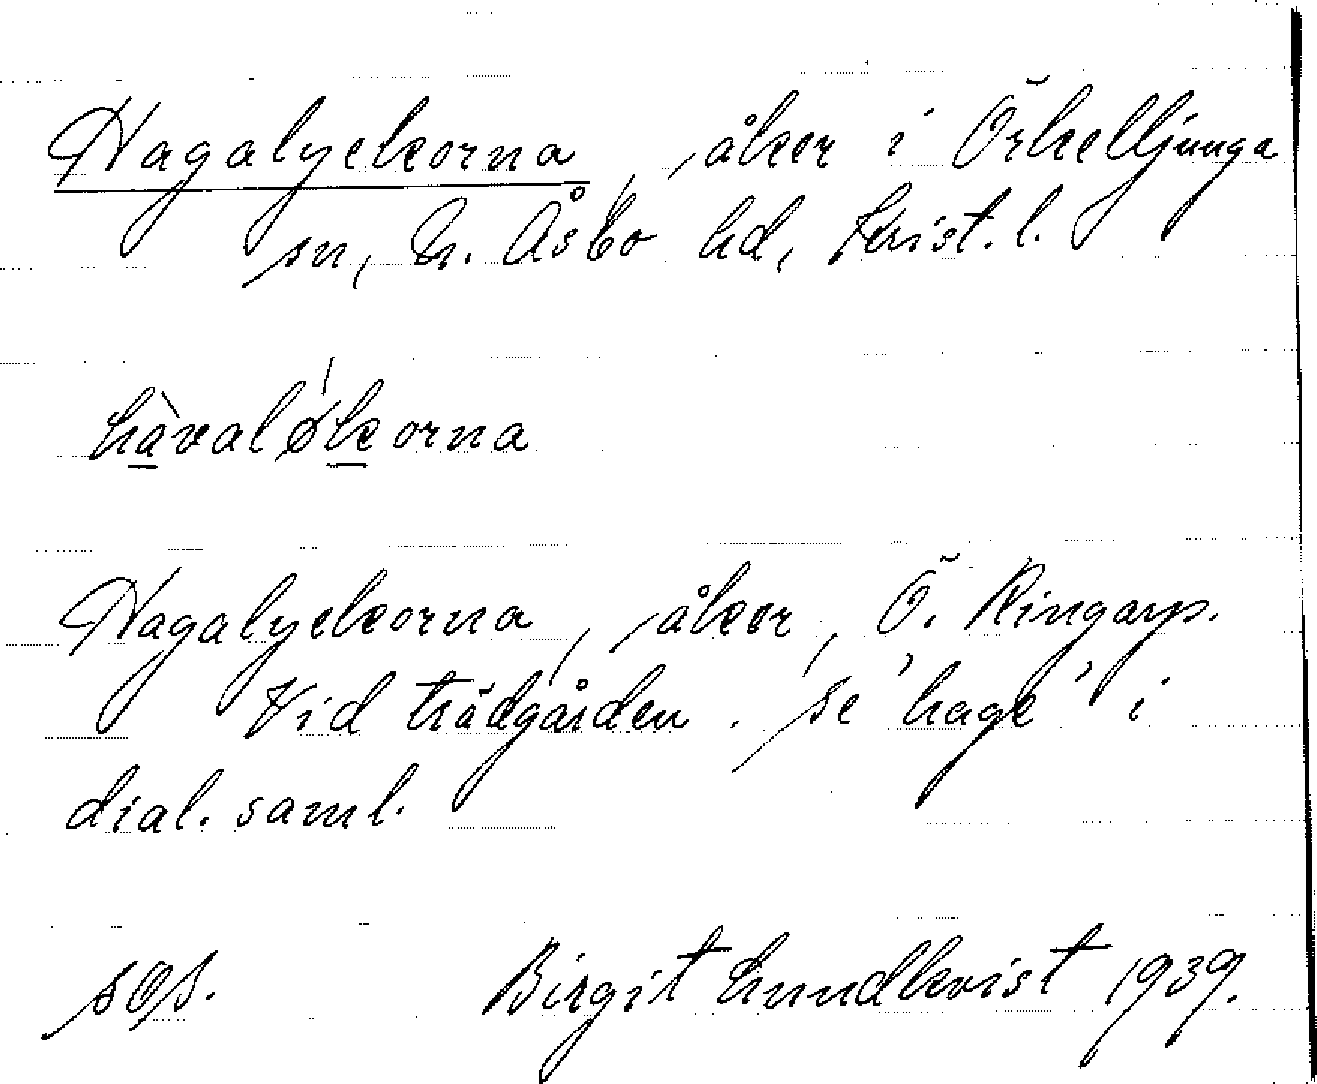 Hagalyckorna, åker i Örkelljunga
sn, N. Åsbo hd, Krist. l.
hàvaløkorna
Hagalyckorna, åker, Ö. Ringarp.
Vid trädgården. Se 'hage' i
dial. saml.
Birgit Lundkvist 1939.